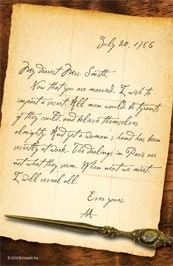 July 20, 1786
My dearest Mrs. Smith
Now that you are married, I wish to
impart a secret. All men would be tyrants
if they could, and believe themselves
almighty. And yet a woman's hand has been
secretly at work. The dealings in Paris are
not what they seem. When next we meet
I will reveal all.
Ever yours,
AA